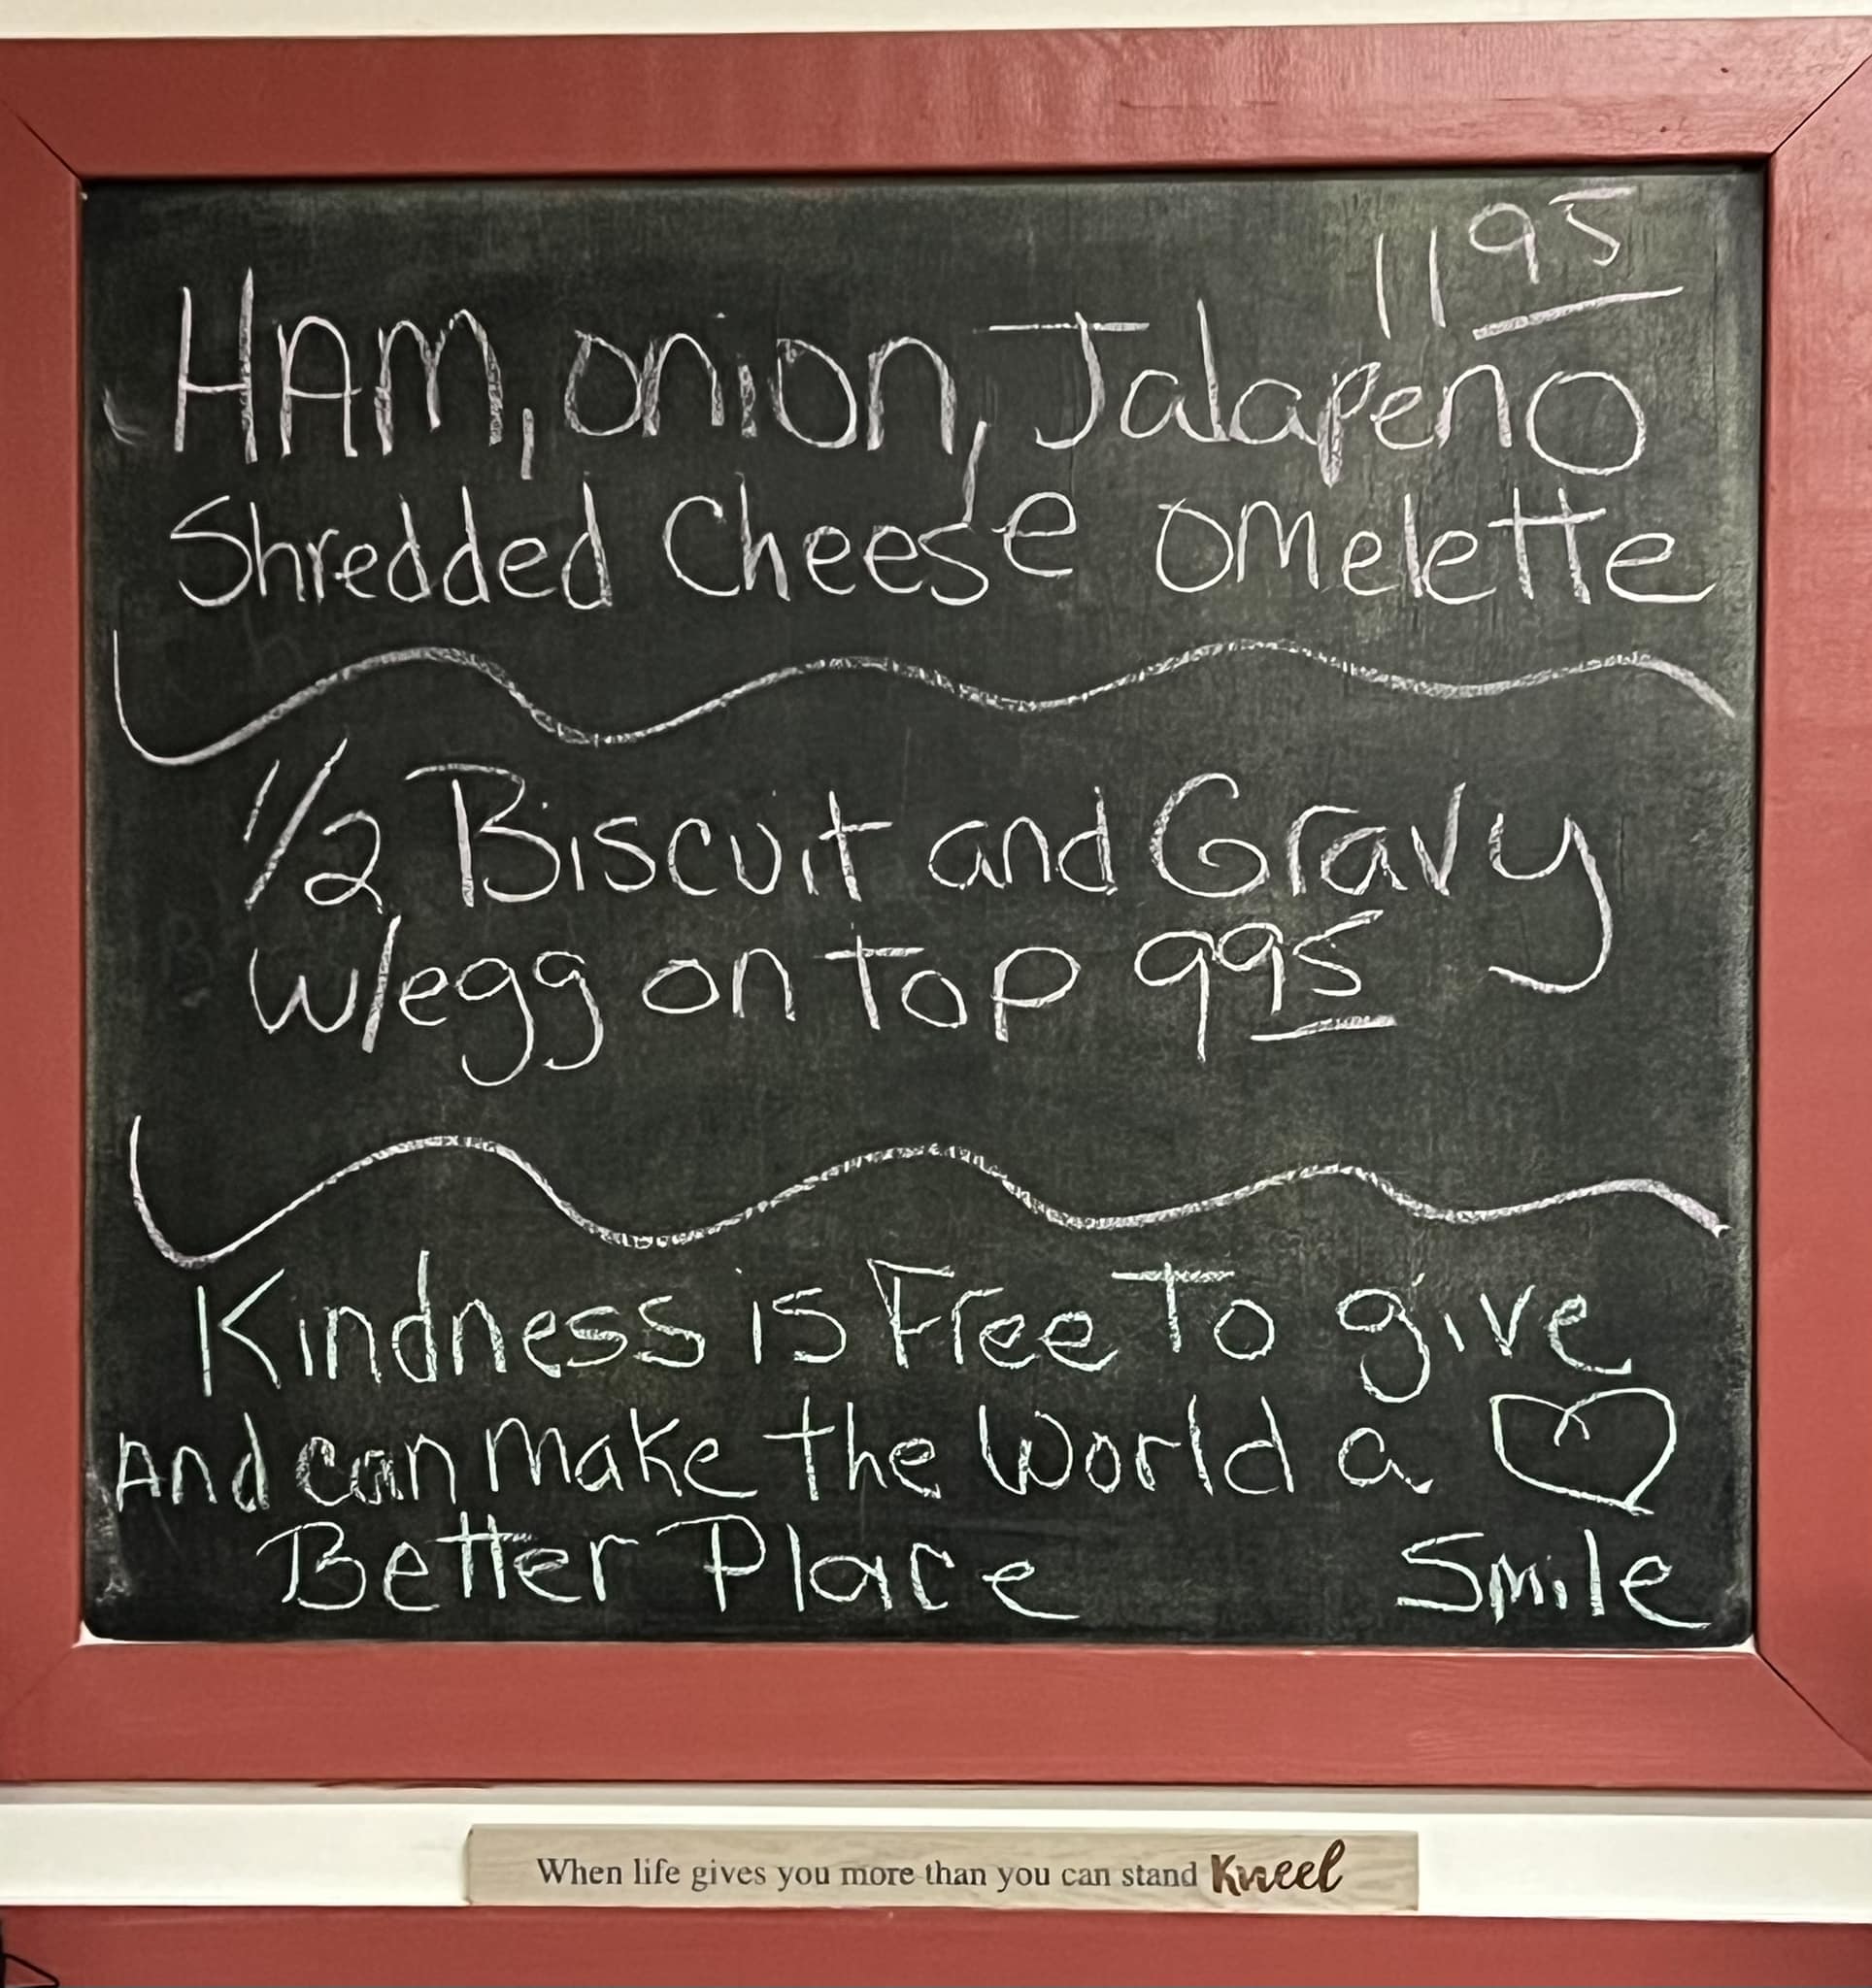 11 95
HAM, onion, Jalapeno
Shredded Cheese omelette
1/2 Biscuit and Gravy
w/egg on top 9 95
Kindness is Free To give
And can make the World a
Better Place Smile
When life gives you more than you can stand Kneel